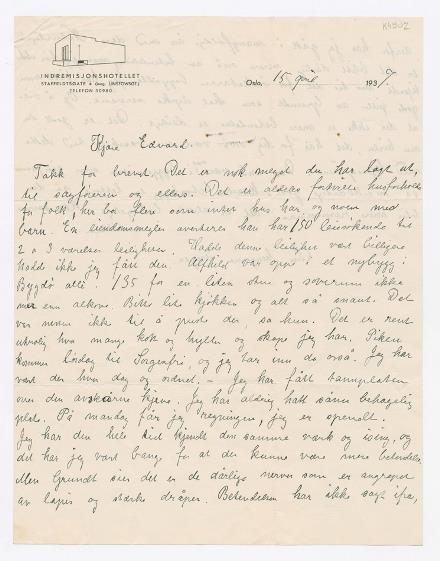 K4902
INDREMISJONSHOTELLET
STAFFELDTSGATE 4 (inng. LINSTOWSGT.)
TELEFON 30980
Oslo, 15 april 1937.
Kjære Edvard.
Takk for brevet. Det er nok meget du har lagt ut,
til sagføreren og ellers. Det er aldeles husforhold
for folk, her bo flere som inter hus har, og noen med
barn. En averterer han har 150 leiesøkende til
2 a 3 værelses leiligheter. Hadde denne leilighet vært billigere
hadde ikke jeg fått den. Alfhild var oppe i et nybygg i
Bygdø allé. 135 for en liten stue og soverum ikke
mer enn alkove. Bitte lite kjøkken og alt så smaat. Det
var noe ikke til å for, sa hun. Det er rent
utrolig hva mange kott og hyller og skape jeg har. Piken
kommer lördag til Sorgenfri, og jeg tar inn da også. Jeg har
vært der hver dag og ordnet. – Jeg har fått
over den kjeve. Jeg har aldrig hatt sånn behagelig
plate. På mandag får jeg regningen, jeg er spendt.
Jeg har den hele tid kjendt den samme værk og , og
det har jeg vært bange for at det kunne være mere betendelse.
Men Grundt sier det er de dårlige nerver som er angrepet
av lapis og stærke dråper. Betendelsen har ikke sagt ifra,